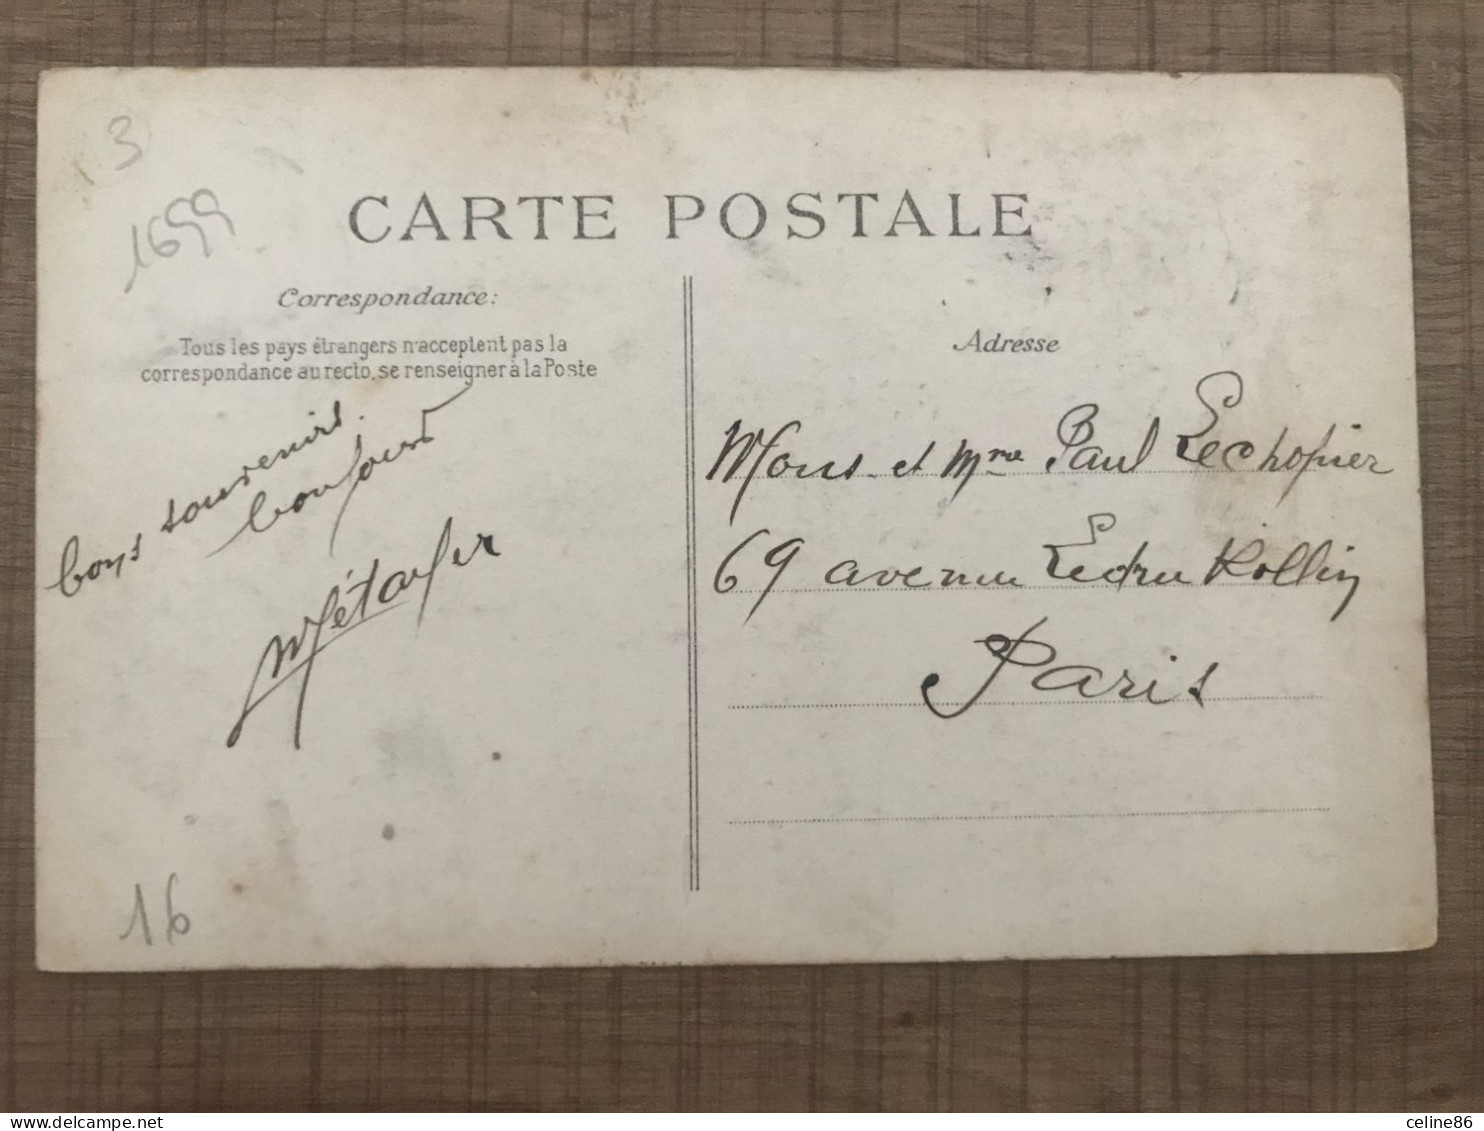 3
1699
CARTE POSTALE
Correspondance:
Tous les pays étrangers n'acceptent pas la
correspondance au recto, se renseigner à la Poste
bons souvenirs.
bonjours
Adresse
Mons et Mme Paul Lechopier
69 avenue Ledru Rollin
Paris
16
delcampe.net
celine86